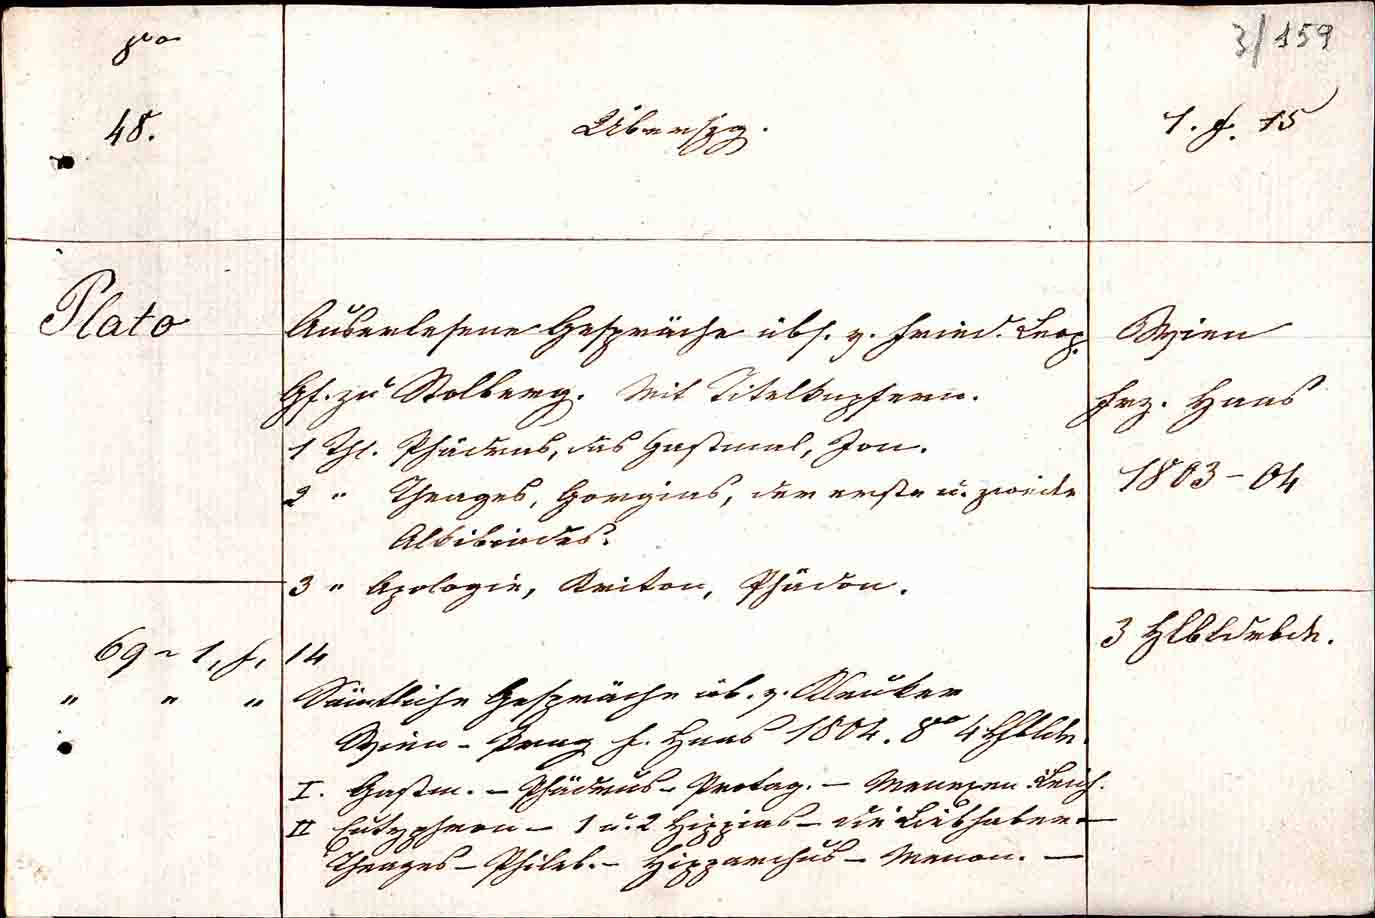 8vo
3/159
48.
Überszg.
1. f. 15
Plato
Auserlesene Gespräche übs. v. Fried. Leop.
Gf. zu Stolberg. Mit Titelkupfern.
1 Thl. Phädrus, das Gastmal, Jon.
2 " Theages, Gorgias, der erste u. zweite
Alkibiades.
3 " Apologie, Kriton, Phädon.
Wien
Frz. Haas
1803-04
3 Hlbldrbde.
69 ~ 1. f. 14
" " " Sämtliche Gespräche üb. v. Kleuker
Wien - Prag f. Haas 1804. 8vo 4 Hflbde.
I. Gastm. - Phädrus - Protag. - Menexen
II Eutyphron - 1 u. 2 Hippias - die Liebhaber -
Theages - Phileb. - Hipparchus - Menon. -